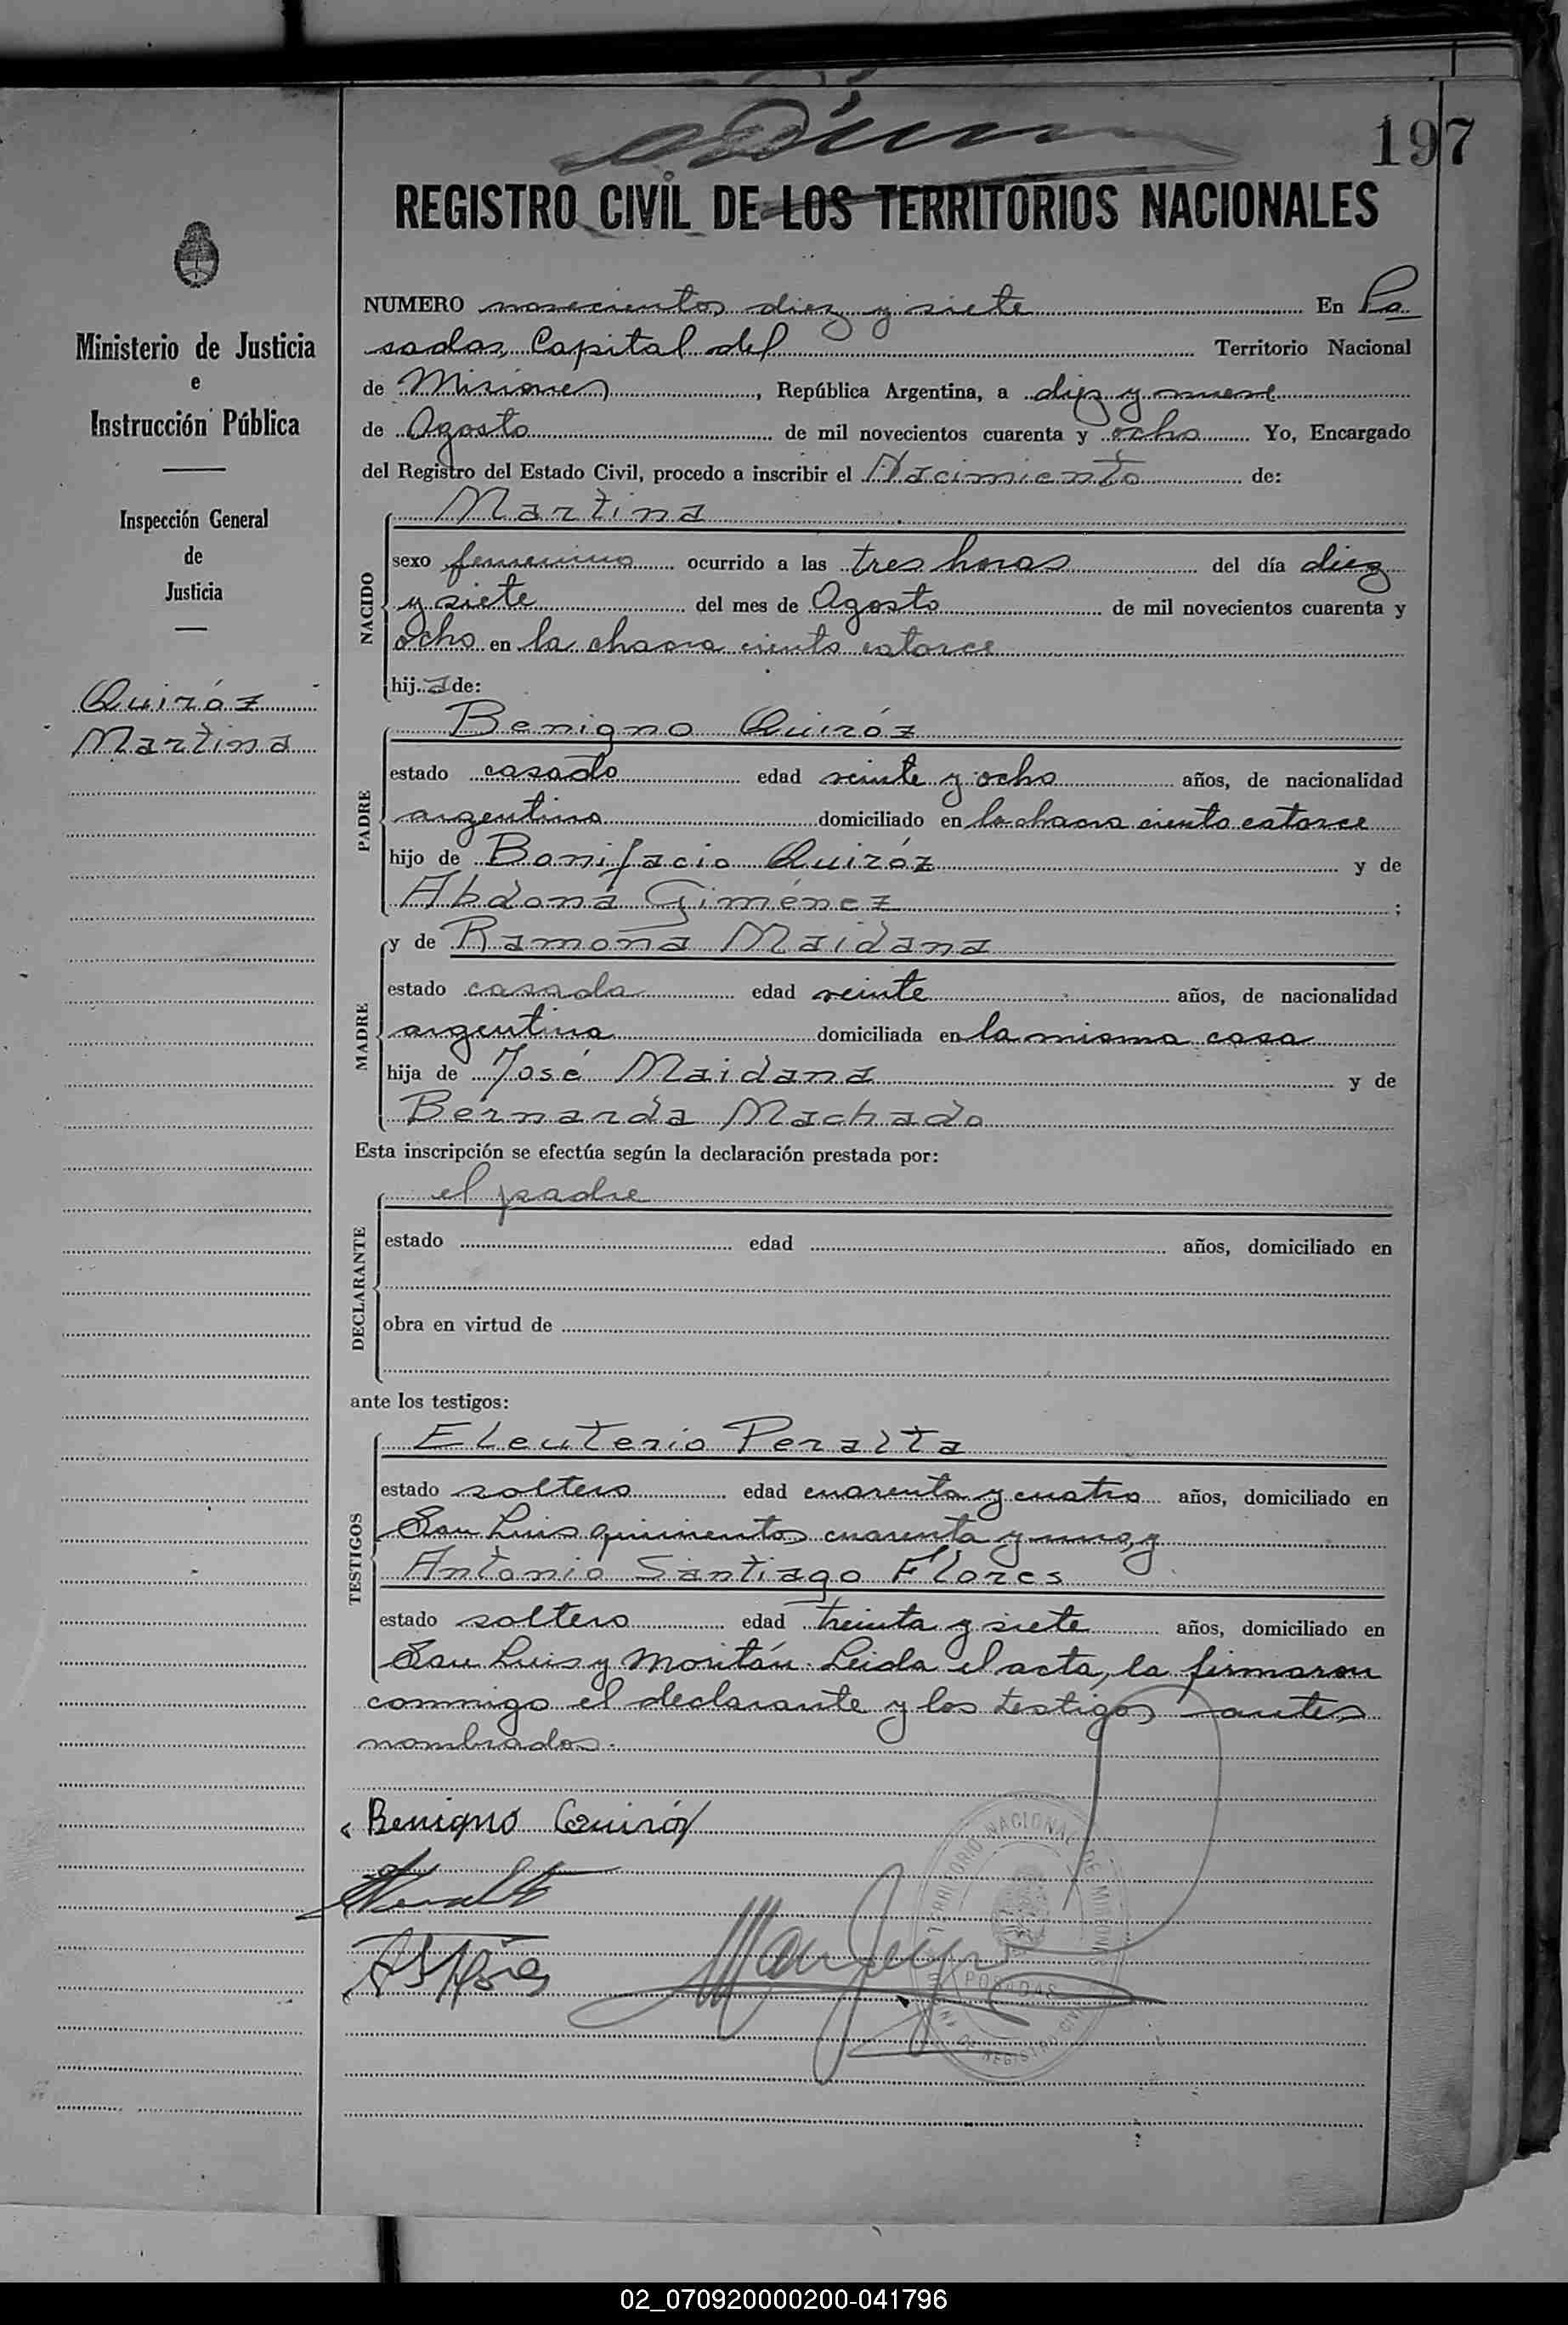 197
REGISTRO CIVIL DE LOS TERRITORIOS NACIONALES
Ministerio de Justicia
e
Instrucción Pública
Inspección General
de
Justicia
Quiróz
Martina
NUMERO novecientos diez y siete En Po
sadas, Capital del Territorio Nacional
de Misiones, República Argentina, a diez y nueve
de Agosto de mil novecientos cuarenta y ocho Yo, Encargado
del Registro del Estado Civil, procedo a inscribir el Nacimiento de:
NACIDO
Martina
sexo femenino ocurrido a las tres horas del día diez
y siete del mes de Agosto de mil novecientos cuarenta y
ocho en la chacra ciento catorce
hija de:
PADRE
Benigno Quiróz
estado casado edad veinte y ocho años, de nacionalidad
argentina domiciliado en la chacra ciento catorce
hijo de Bonifacio Quiróz y de
Abdona Giménez;
MADRE
y de Ramona Maidana
estado casada edad veinte años, de nacionalidad
argentina domiciliada en la misma casa
hija de José Maidana y de
Bernarda Machado
Esta inscripción se efectúa según la declaración prestada por:
DECLARANTE
el padre
estado edad años, domiciliado en
obra en virtud de
ante los testigos:
TESTIGOS
Eleuterio Peralta
estado soltero edad cuarenta y cuatro años, domiciliado en
San Luis quinientos cuarenta y uno, y
Antonio Santiago Flores
estado soltero edad treinta y siete años, domiciliado en
San Luis y Moritán. Leida el acta, la firmaron
conmigo el declarante y los testigos antes
nombrados.
Benigno Quiróz
TERRITORIO NACIONAL DE MISIONES
POSADAS
REGISTRO CIVIL
02_070920000200-041796